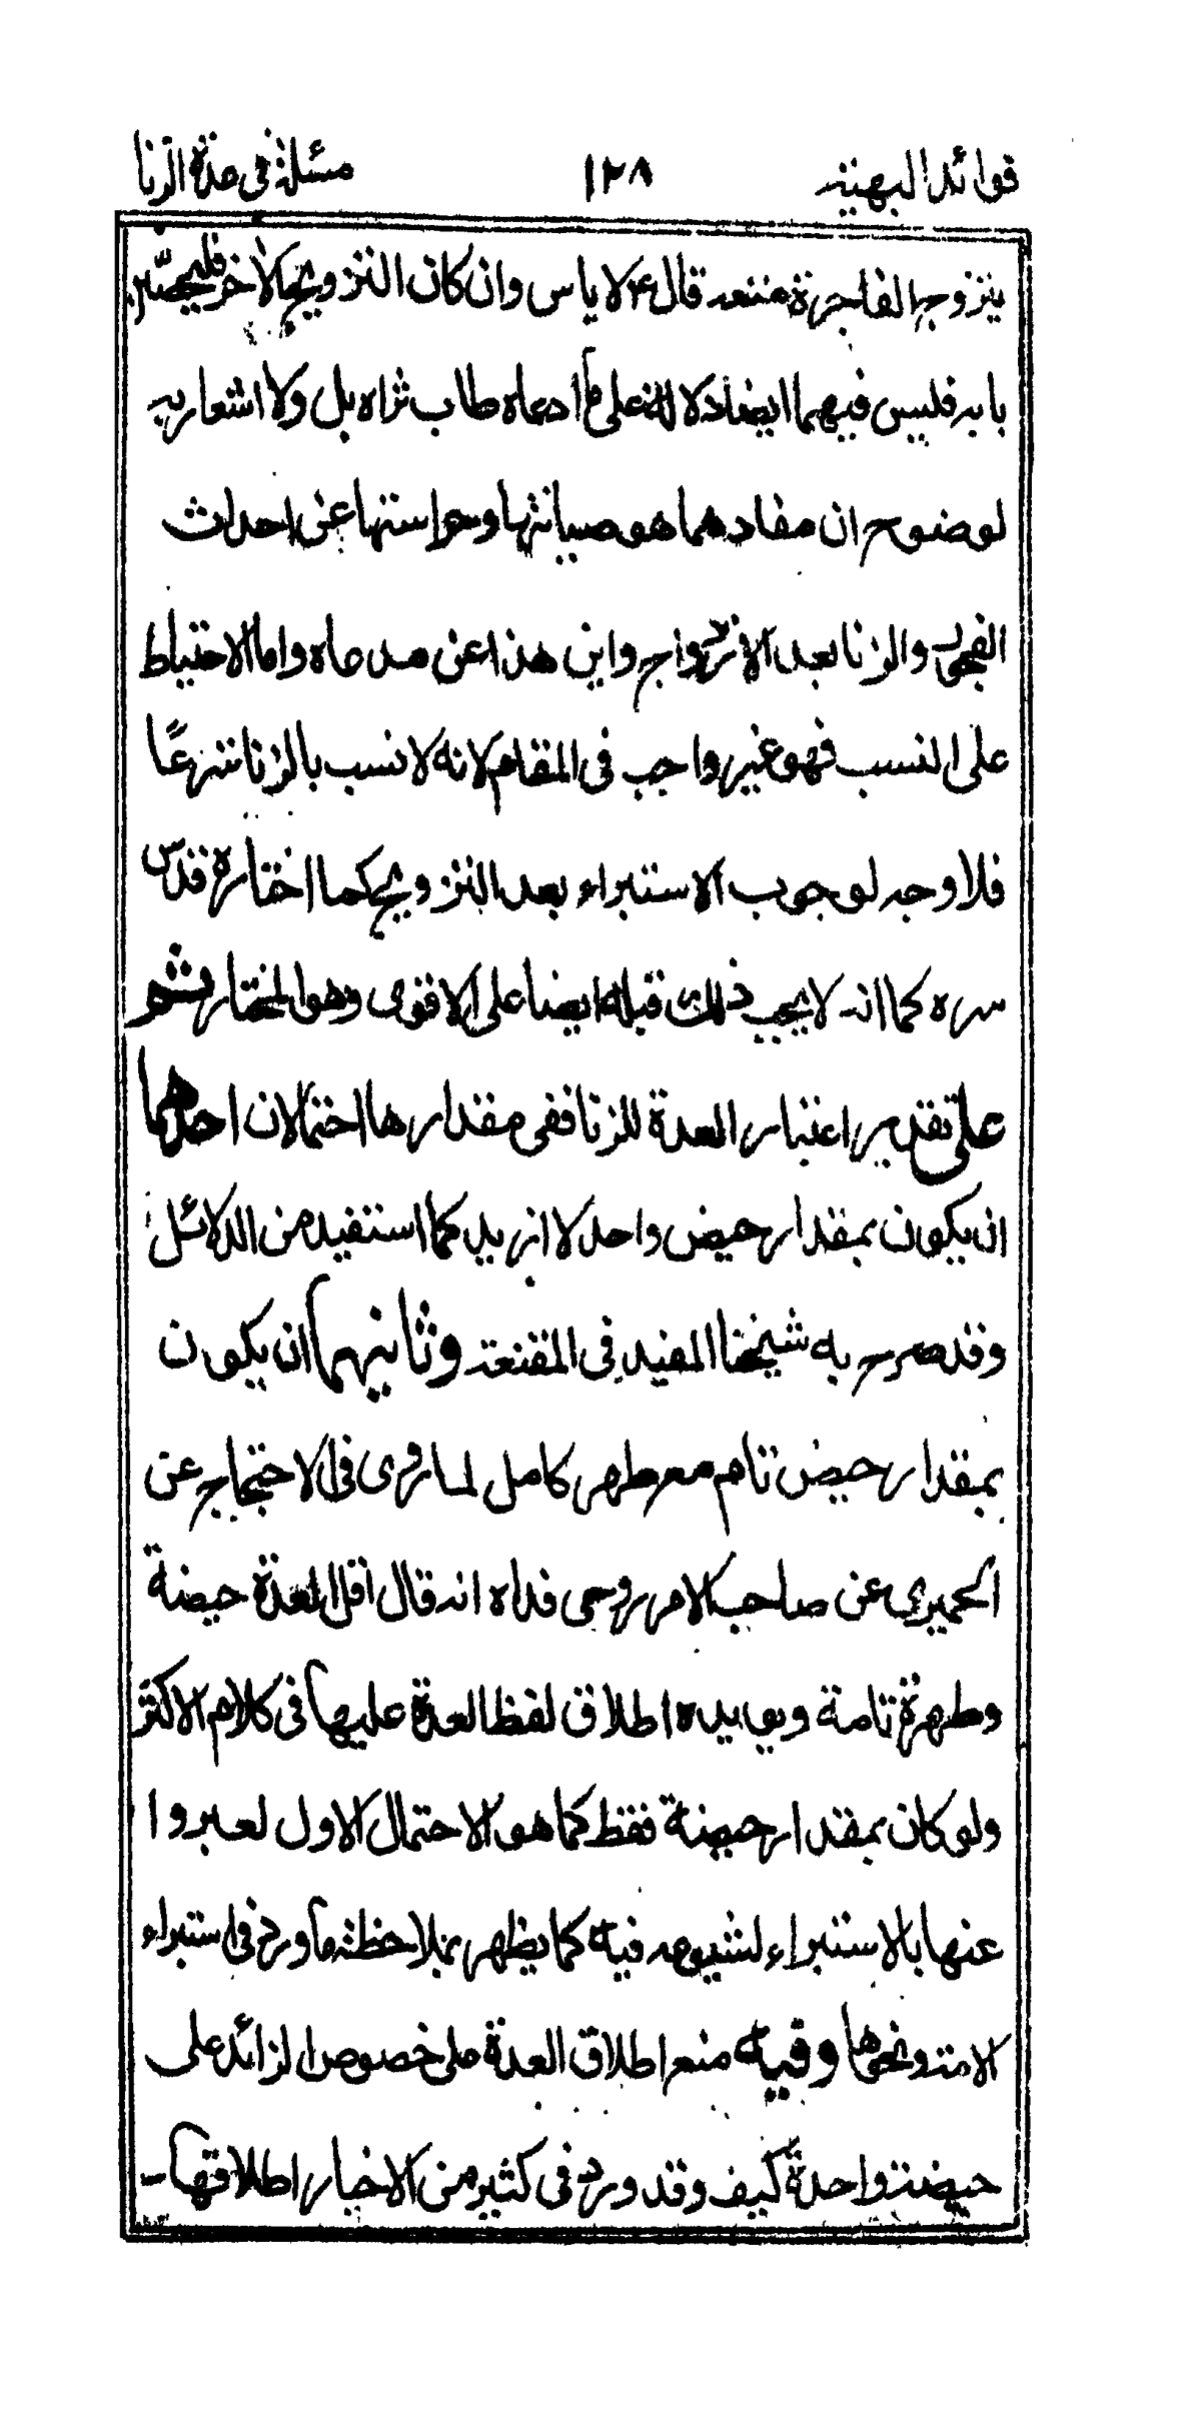 فوائد البهية ١٢٨ مسئلة فى عدة الزنا
يتزوجها الفاجرة متعة قال ع لا باس وان كان التزويج الاخر فليحصن
بابه فليس فيهما ايضا دلالة على ما ادعاه طاب ثراه بل ولا اشعار به
لوضوح ان مفادهما هو صيانتها وحراستها عن احداث
الفجور والزنا بعد الازدواج واين هذا عن مدعاه واما الاحتياط
على النسب فهو غير واجب فى المقام لانه لا نسب بالزنا شرعًا
فلا وجه لوجوب الاستبراء بعد التزويج كما اختاره قدس
سره كما انه لا يجب ذلك قبله ايضا على الاقوى وهو المختار ثم
على تقدير اعتبار العدة للزنا ففى مقدارها احتمالان احدهما
ان يكون بمقدار حيض واحد لا ازيد كما استفيد من الدلائل
وقد صرح به شيخنا المفيد فى المقنعة وثانيهما ان يكون
بمقدار حيض تام مع طهر كامل لما روى فى الاحتجاج عن
الحميري عن صاحب الامر روحى فداه انه قال اقل العدة حيضة
وطهرة تامة ويويده اطلاق لفظ العدة عليها فى كلام الاكثر
ولو كان بمقدار حيضة فقط كما هو الاحتمال الاول لعبروا
عنها بالاستبراء لشيوعه فيه كما يظهر بملاحظة ما ورد فى استبراء
الامة ونحوها وفيه منع اطلاق العدة على خصوص الزائد على
حيضة واحدة كيف وقد ورد فى كثير من الاخبار اطلاقها -